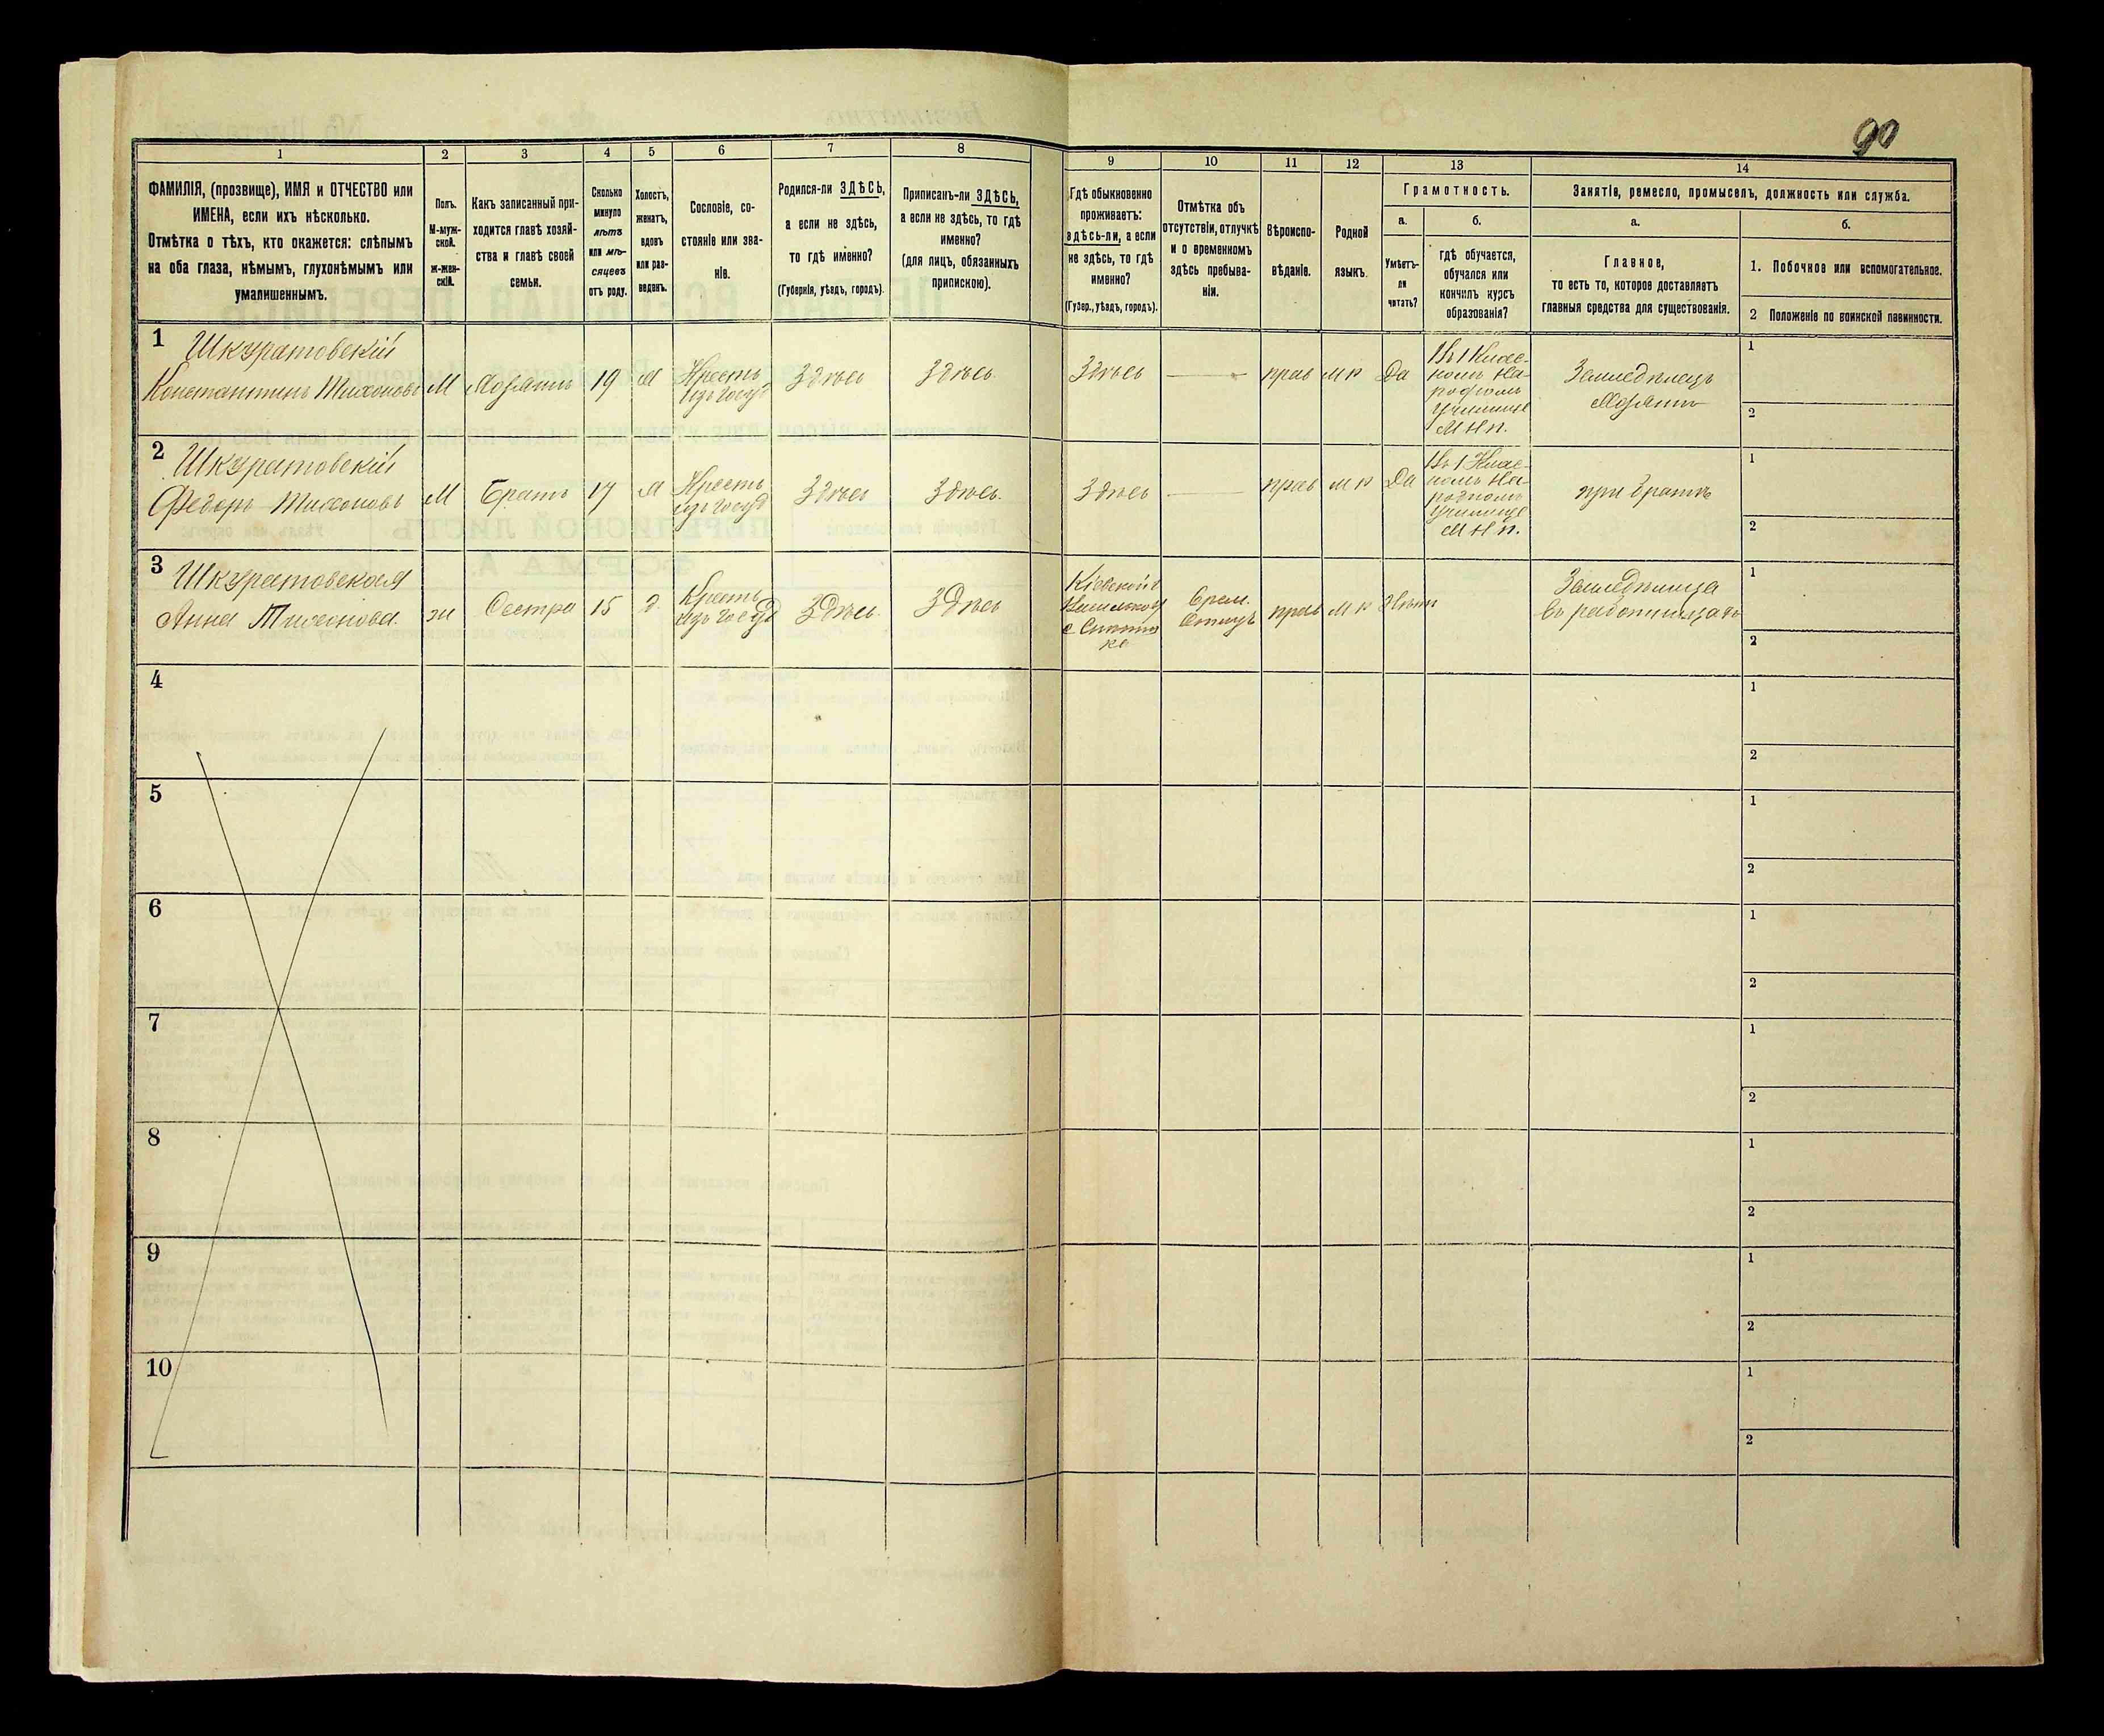 90
1
2
3
4
5
6
7
8
9
10
11
12
13
14
ФАМИЛІЯ, (прозвище), ИМЯ и ОТЧЕСТВО или
ИМЕНА, если ихъ нѣсколько.
Отмѣтка о тѣхъ, кто окажется: слѣпымъ
на оба глаза, нѣмымъ, глухонѣмымъ или
умалишеннымъ.
Полъ.
М-муж-
ской.
ж-жен-
скій.
Какъ записанный при-
ходится главѣ хозяй-
ства и главѣ своей
семьи.
Сколько
минуло
лѣтъ
или мѣ-
сяцевъ
отъ роду.
Холостъ,
женатъ,
вдовъ
или раз-
веденъ.
Сословіе, со-
стояніе или зва-
ніе.
Родился-ли ЗДѢСЬ,
а если не здѣсь,
то гдѣ именно?
(Губернія, уѣздъ, городъ).
Приписанъ-ли ЗДѢСЬ,
а если не здѣсь, то гдѣ
именно?
(для лицъ, обязанныхъ
припискою).
Гдѣ обыкновенно
проживаетъ:
здѣсь-ли, а если
не здѣсь, то гдѣ
именно?
(Губер., уѣздъ, городъ).
Отмѣтка объ
отсутствіи, отлучкѣ
и о временномъ
здѣсь пребыва-
ніи.
Вѣроиспо-
вѣданіе.
Родной
языкъ.
Грамотность.
а.
Умѣетъ-
ли
читать?
б.
гдѣ обучается,
обучался или
кончилъ курсъ
образованія?
Занятіе, ремесло, промыселъ, должность или служба.
а.
Главное,
то есть то, которое доставляетъ
главныя средства для существованія.
б.
1. Побочное или вспомогательное.
2 Положеніе по воинской повинности.
1
Шкуратовскій
Константинъ Тихоновъ
М
Хозяинъ
19
Х
Крестъ
изъ госуд
Здѣсь
Здѣсь
Здѣсь
прав
М Р
Да
Въ 1 Клас-
номъ На-
родномъ
училище
М Н П.
Земледѣлецъ
Хозяинъ
1
2
2
Шкуратовскій
Федоръ Тихоновъ
М
Братъ
17
Х
Крестъ
изъ госуд
Здѣсь
Здѣсь.
Здѣсь
прав
М Р
Да
Въ 1 Клас-
номъ На-
родномъ
училище
М Н П.
при братѣ
1
2
3
Шкуратовская
Анна Тихонова.
ж
Сестра
15
д.
Крестъ
изъ госуд
Здѣсь.
Здѣсь
Кіевской г
прав
М Р
Нѣтъ
Земледѣлица
въ работницахъ
1
2
4
1
2
5
1
2
6
1
2
7
1
2
8
1
2
9
1
2
10
1
2